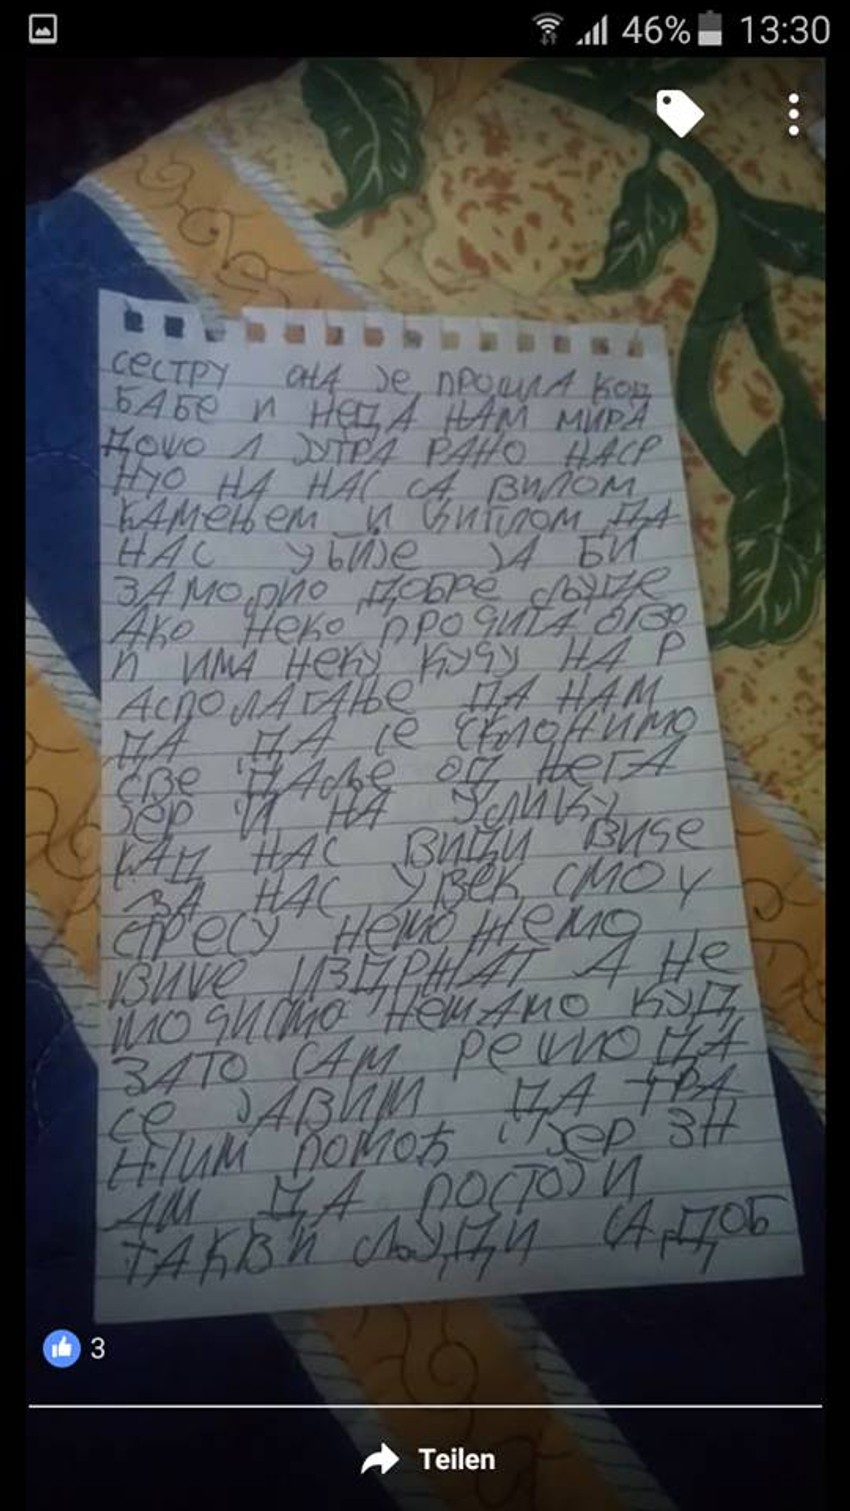 46% 13:30
СЕСТРУ ОНА ЈЕ ПРОШЛА КОД
БАБЕ И НЕДА НАМ МИРА
ДОШО Ј ЈУТРА РАНО НАСР
НУО НА НАС СА ВИЛОМ
КАМЕЊЕМ И ДА
НАС УБИЈЕ ЈА БИ
ЗАМОЛИО ДОБРЕ ЉУДЕ
АКО НЕКО ПРОЧИТА ОВО
И ИМА НЕКУ КУЧУ НА Р
АСПОЛАГАЊЕ ДА НАМ
ДА ДА СЕ СКЛОНИМО
СВЕ ДАЉЕ ОД ЊЕГА
ЈЕР И НА УЛИЦУ
КАД НАС ВИДИ ВИЧЕ
ЗА НАС УВЕК СМО У
СТРЕСУ НЕМОЖЕМО
ВИШЕ ИЗДРЖАТ А НЕ
НЕМАМО КУД
ЗАТО САМ РЕШИО ДА
СЕ ЈАВИМ ДА ТРА
ЖИМ ПОМОЋ ЈЕР ЗН
АМ ДА ПОСТОЈИ
ТАКВИ ЉУДИ СА ДОБ
3
Teilen